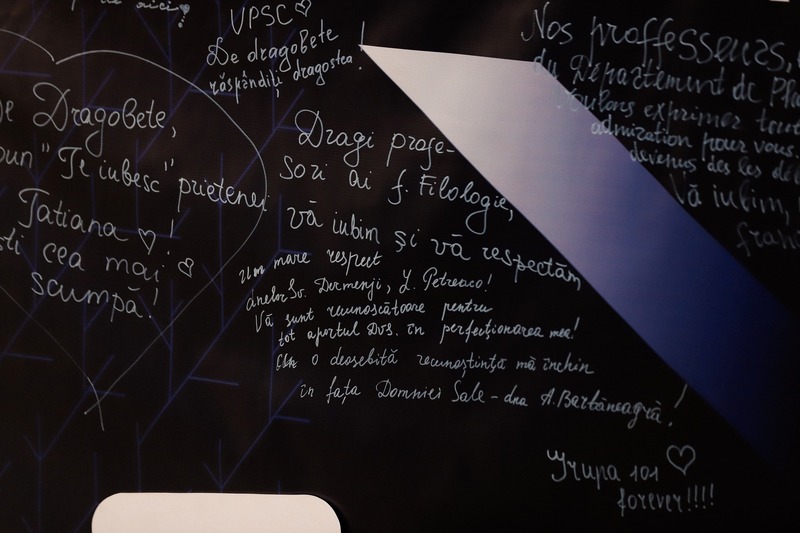 VPSC♡
De dragobete
răspîndiți dragostea!
De Dragobete,
"Te iubesc" prietenei
Tatiana ♡!
cea mai
scumpă!
Dragi profe-
sori ai f. Filologie,
vă iubim și vă respectăm
Un mare respect
dnelor Sv. Dermenji, L. Petrenco!
Vă sunt recunoscătoare pentru
tot aportul DVS. în perfecționarea mea!
Cu o deosebită recunoștință mă închin
în fața Domniei Sale - dna A. Barbăneagră!
Grupa 101 ♡
forever!!!!
Nos proffesseurs,
du Département de
voulons exprimer
admiration pour vous.
devenus des les
Vă iubim,